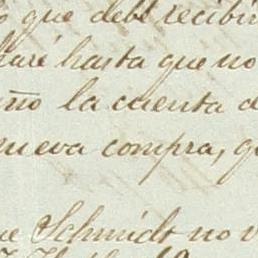 o que debe recibir
haré hasta que no
eño la cuenta d
nueva compra, q
ue Schmidt no v